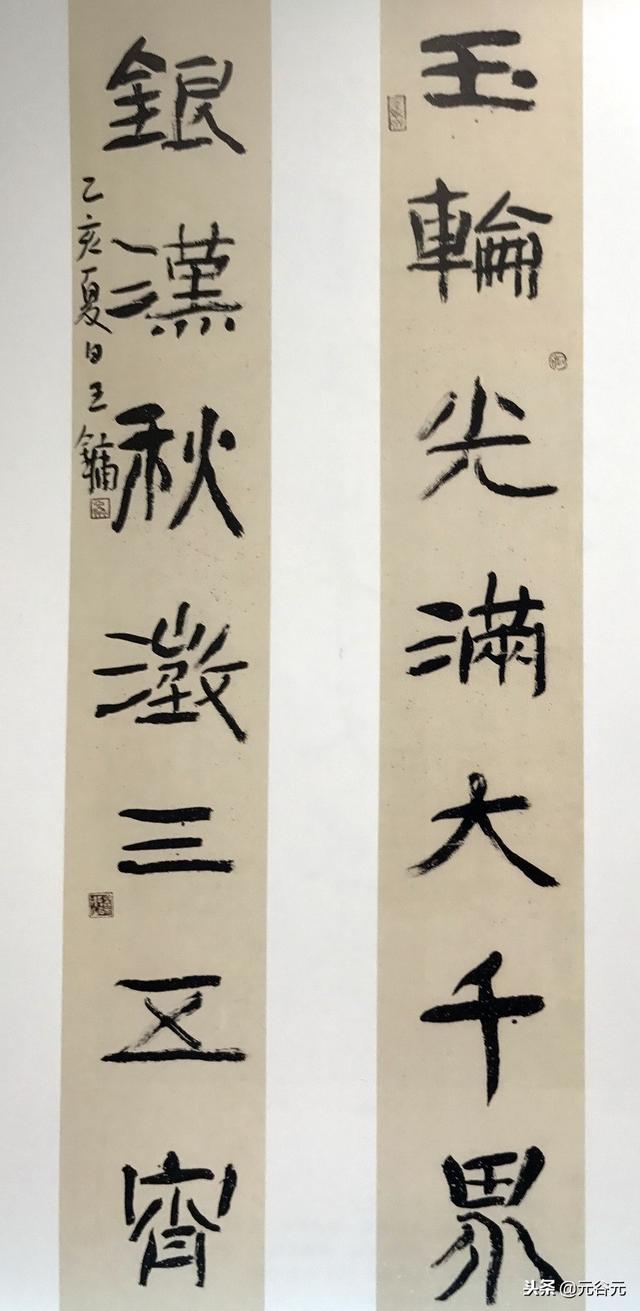 玉輪光滿大千界
銀漢秋澂三五宵
乙亥夏日王鏞
头条@元谷元